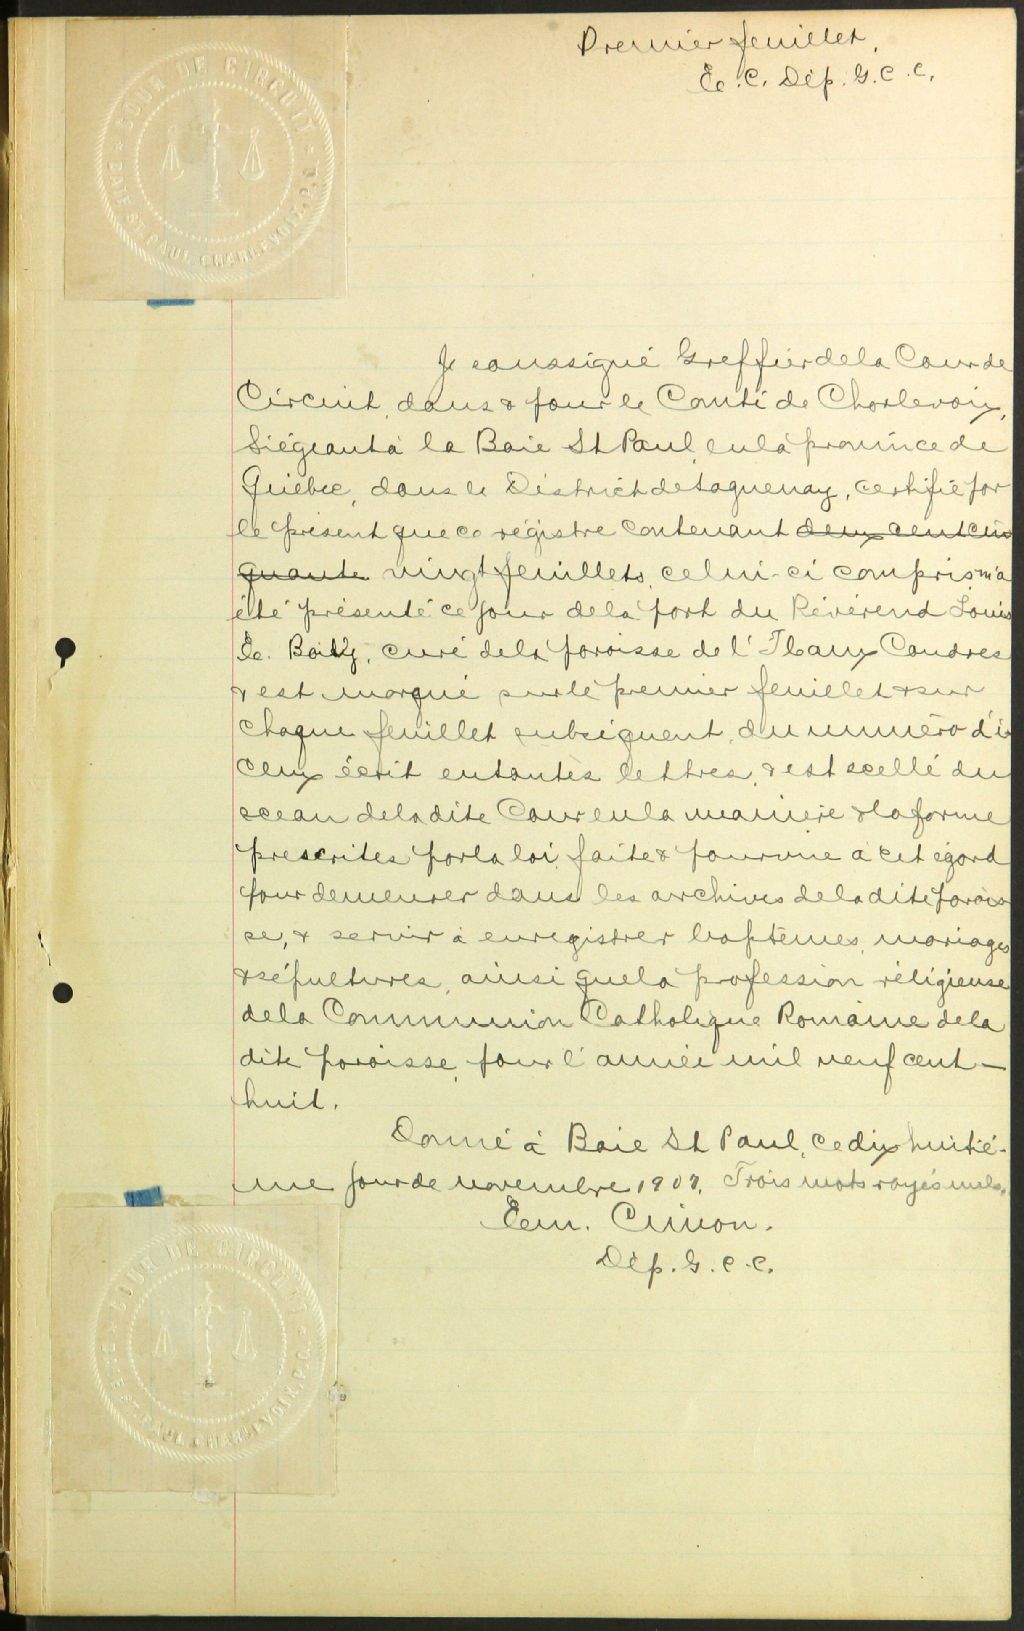 Premier feuillet.
E. C. Dép. G. C. C.
COUR DE CIRCUIT
BAIE ST. PAUL CHARLEVOIX, P.Q.
Je soussigné Greffier de la Cour de
Circuit, dans & pour le Comté de Charlevoix,
Siégeant à la Baie St Paul, en la province de
Québec, dans le District de Saguenay, certifie par
le présent que ce régistre contenant deux cent cin
quante vingt feuillets, celui-ci compris, m'a
été présenté ce jour de la part du Révérend Louis
E. Boily, curé de la paroisse de l'Ile aux Coudres
& est marqué sur le premier feuillet & sur
chaque feuillet subséquent, du numéro d'i
ceux écrit en toutes lettres, & est scellé du
sceau de la dite Cour en la manière & la forme
prescrites par la loi, faite & pourvue à cet égard
pour demeurer dans les archives de la dite parois
se, & servir à enregistrer baptêmes, mariages
& sépultures, ainsi que la profession réligieuse
de la Communion Catholique Romaine de la
dite paroisse, pour l'année mil neuf cent —
huit.
Donné à Baie St Paul, ce dix huitiè-
me jour de novembre 1907. Trois mots rayés nuls.
Em. Cimon.
Dép. G. C. C.
COUR DE CIRCUIT
BAIE ST. PAUL, CHARLEVOIX, P.Q.